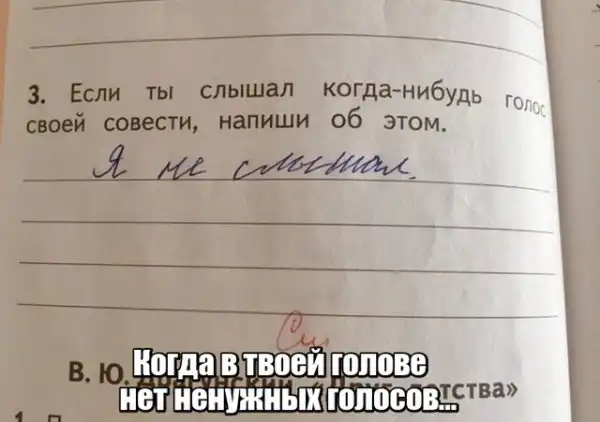 3. Если ты слышал когда-нибудь голос
своей совести, напиши об этом.
Я не слышал.
См
В. Ю. Драгунский «Друг детства»
Когда в твоей голове
нет ненужных голосов...
1. П